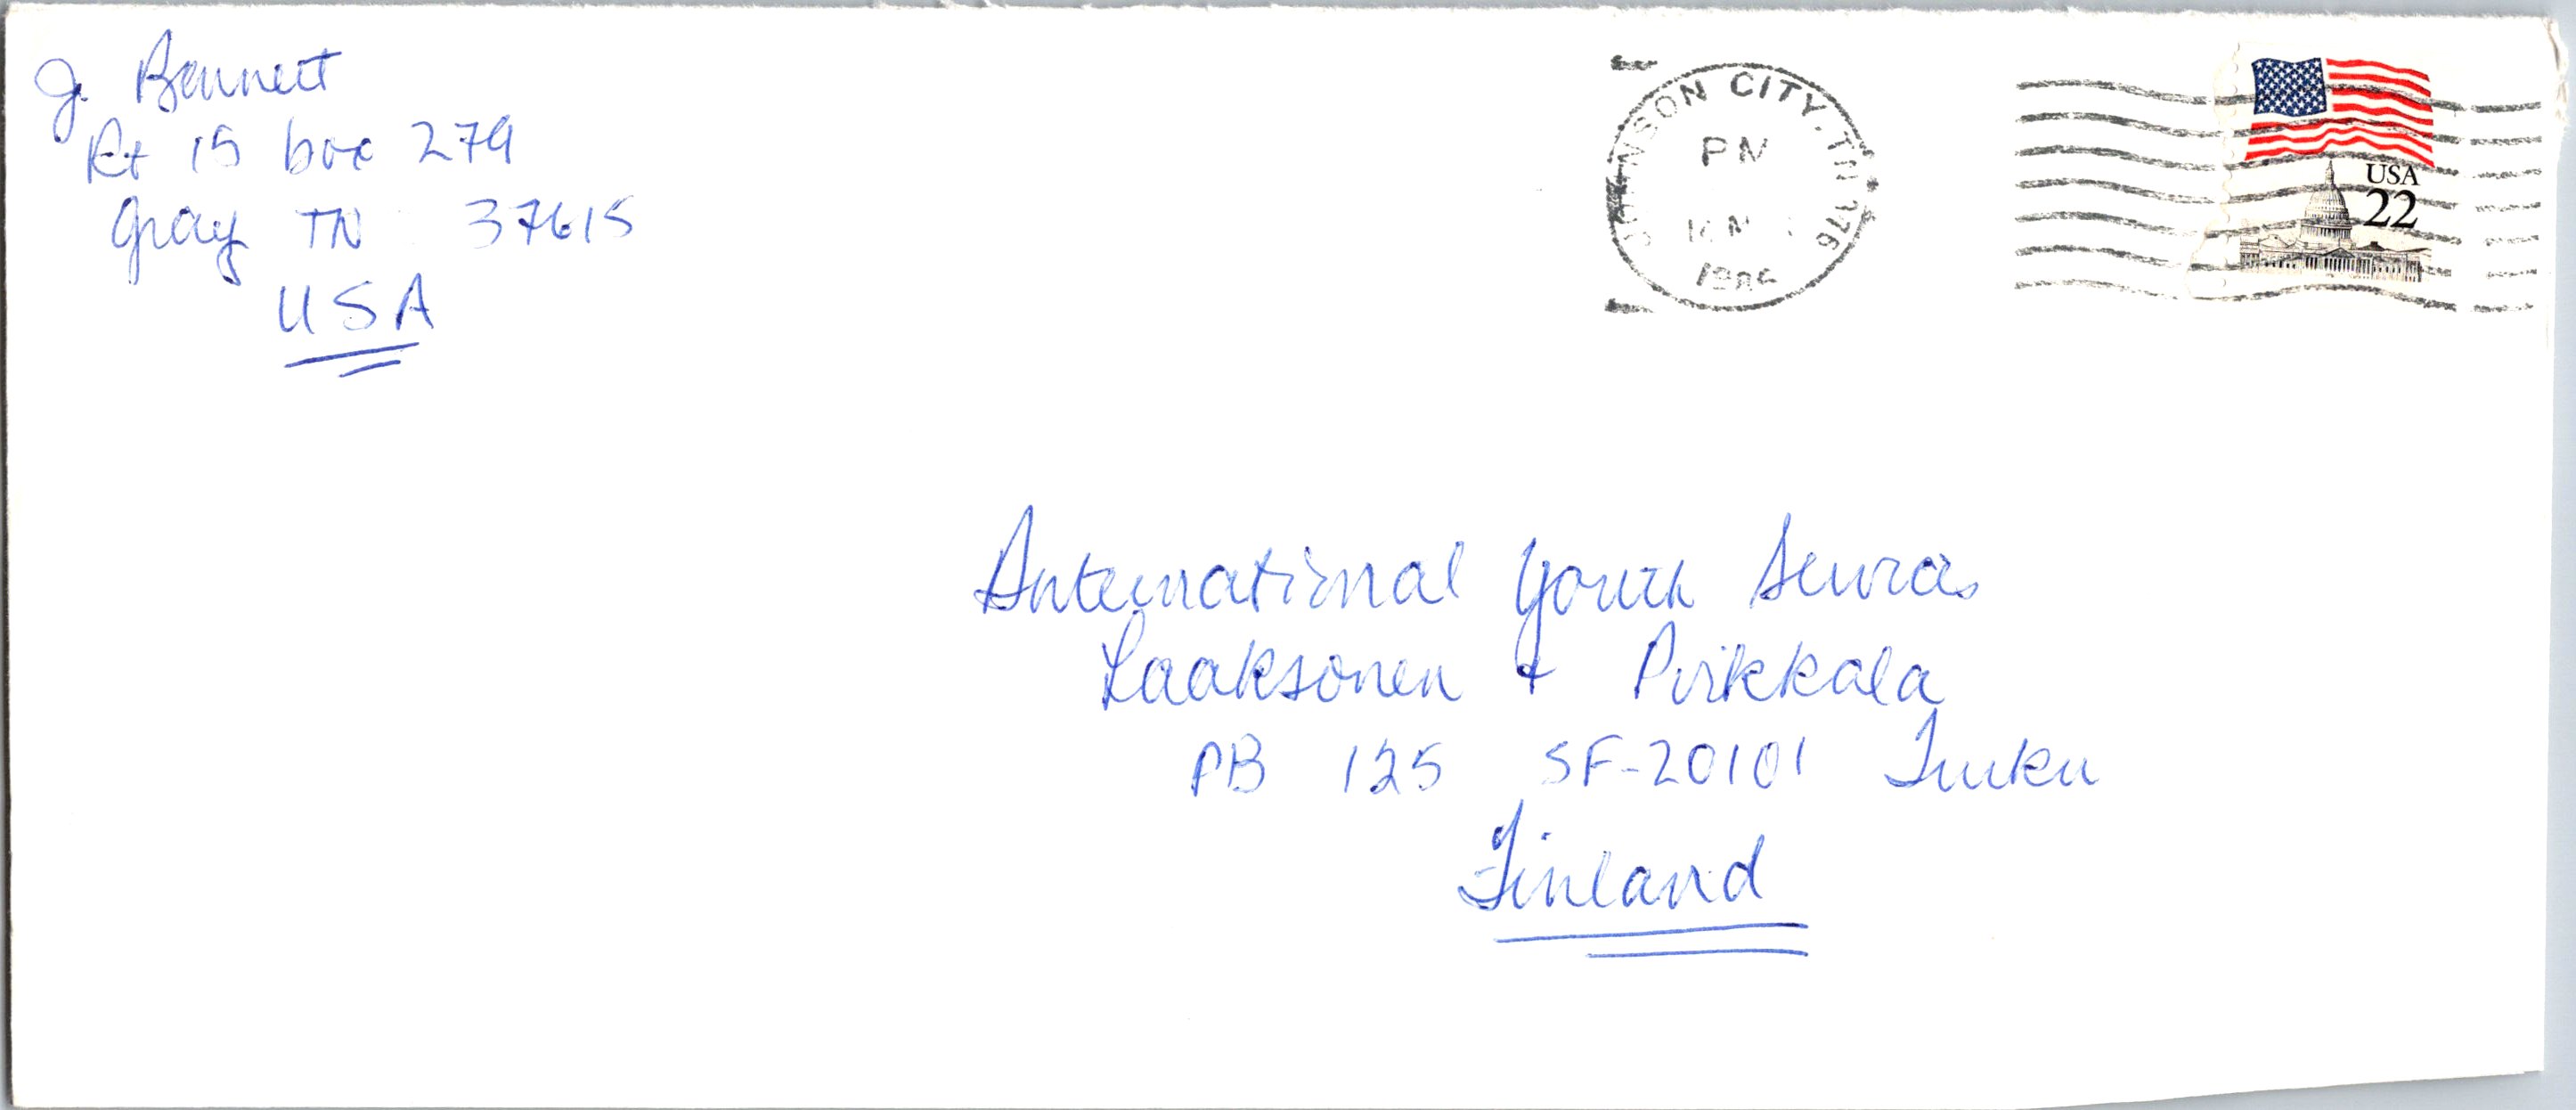 J. Bennett
Rt 15 box 279
Gray TN 37615
USA
JOHNSON CITY, TN 376
PM
USA
22
International Youth Services
Laaksonen + Pirkkala
PB 125 SF-20101 Turku
Finland